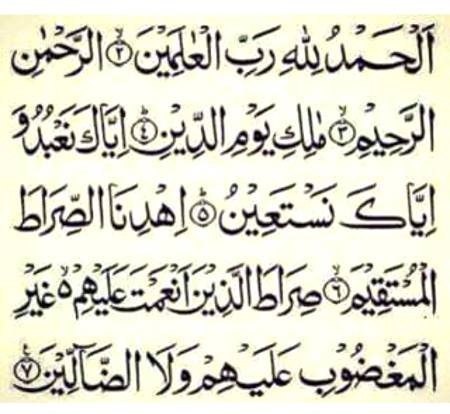 اَلْحَمْدُ لِلّٰهِ رَبِّ الْعٰلَمِيْنَ ۙ﴿۲﴾ الرَّحْمٰنِ
الرَّحِيْمِ ۙ﴿۳﴾ مٰلِكِ يَوْمِ الدِّيْنِ ؕ﴿۴﴾ اِيَّاكَ نَعْبُدُ وَ
اِيَّاكَ نَسْتَعِيْنُ ؕ﴿۵﴾ اِهْدِنَا الصِّرَاطَ
الْمُسْتَقِيْمَ ۙ﴿۶﴾ صِرَاطَ الَّذِيْنَ اَنْعَمْتَ عَلَيْهِمْ ۙ۵ غَيْرِ
الْمَغْضُوْبِ عَلَيْهِمْ وَلَا الضَّآلِّيْنَ ﴿۷﴾